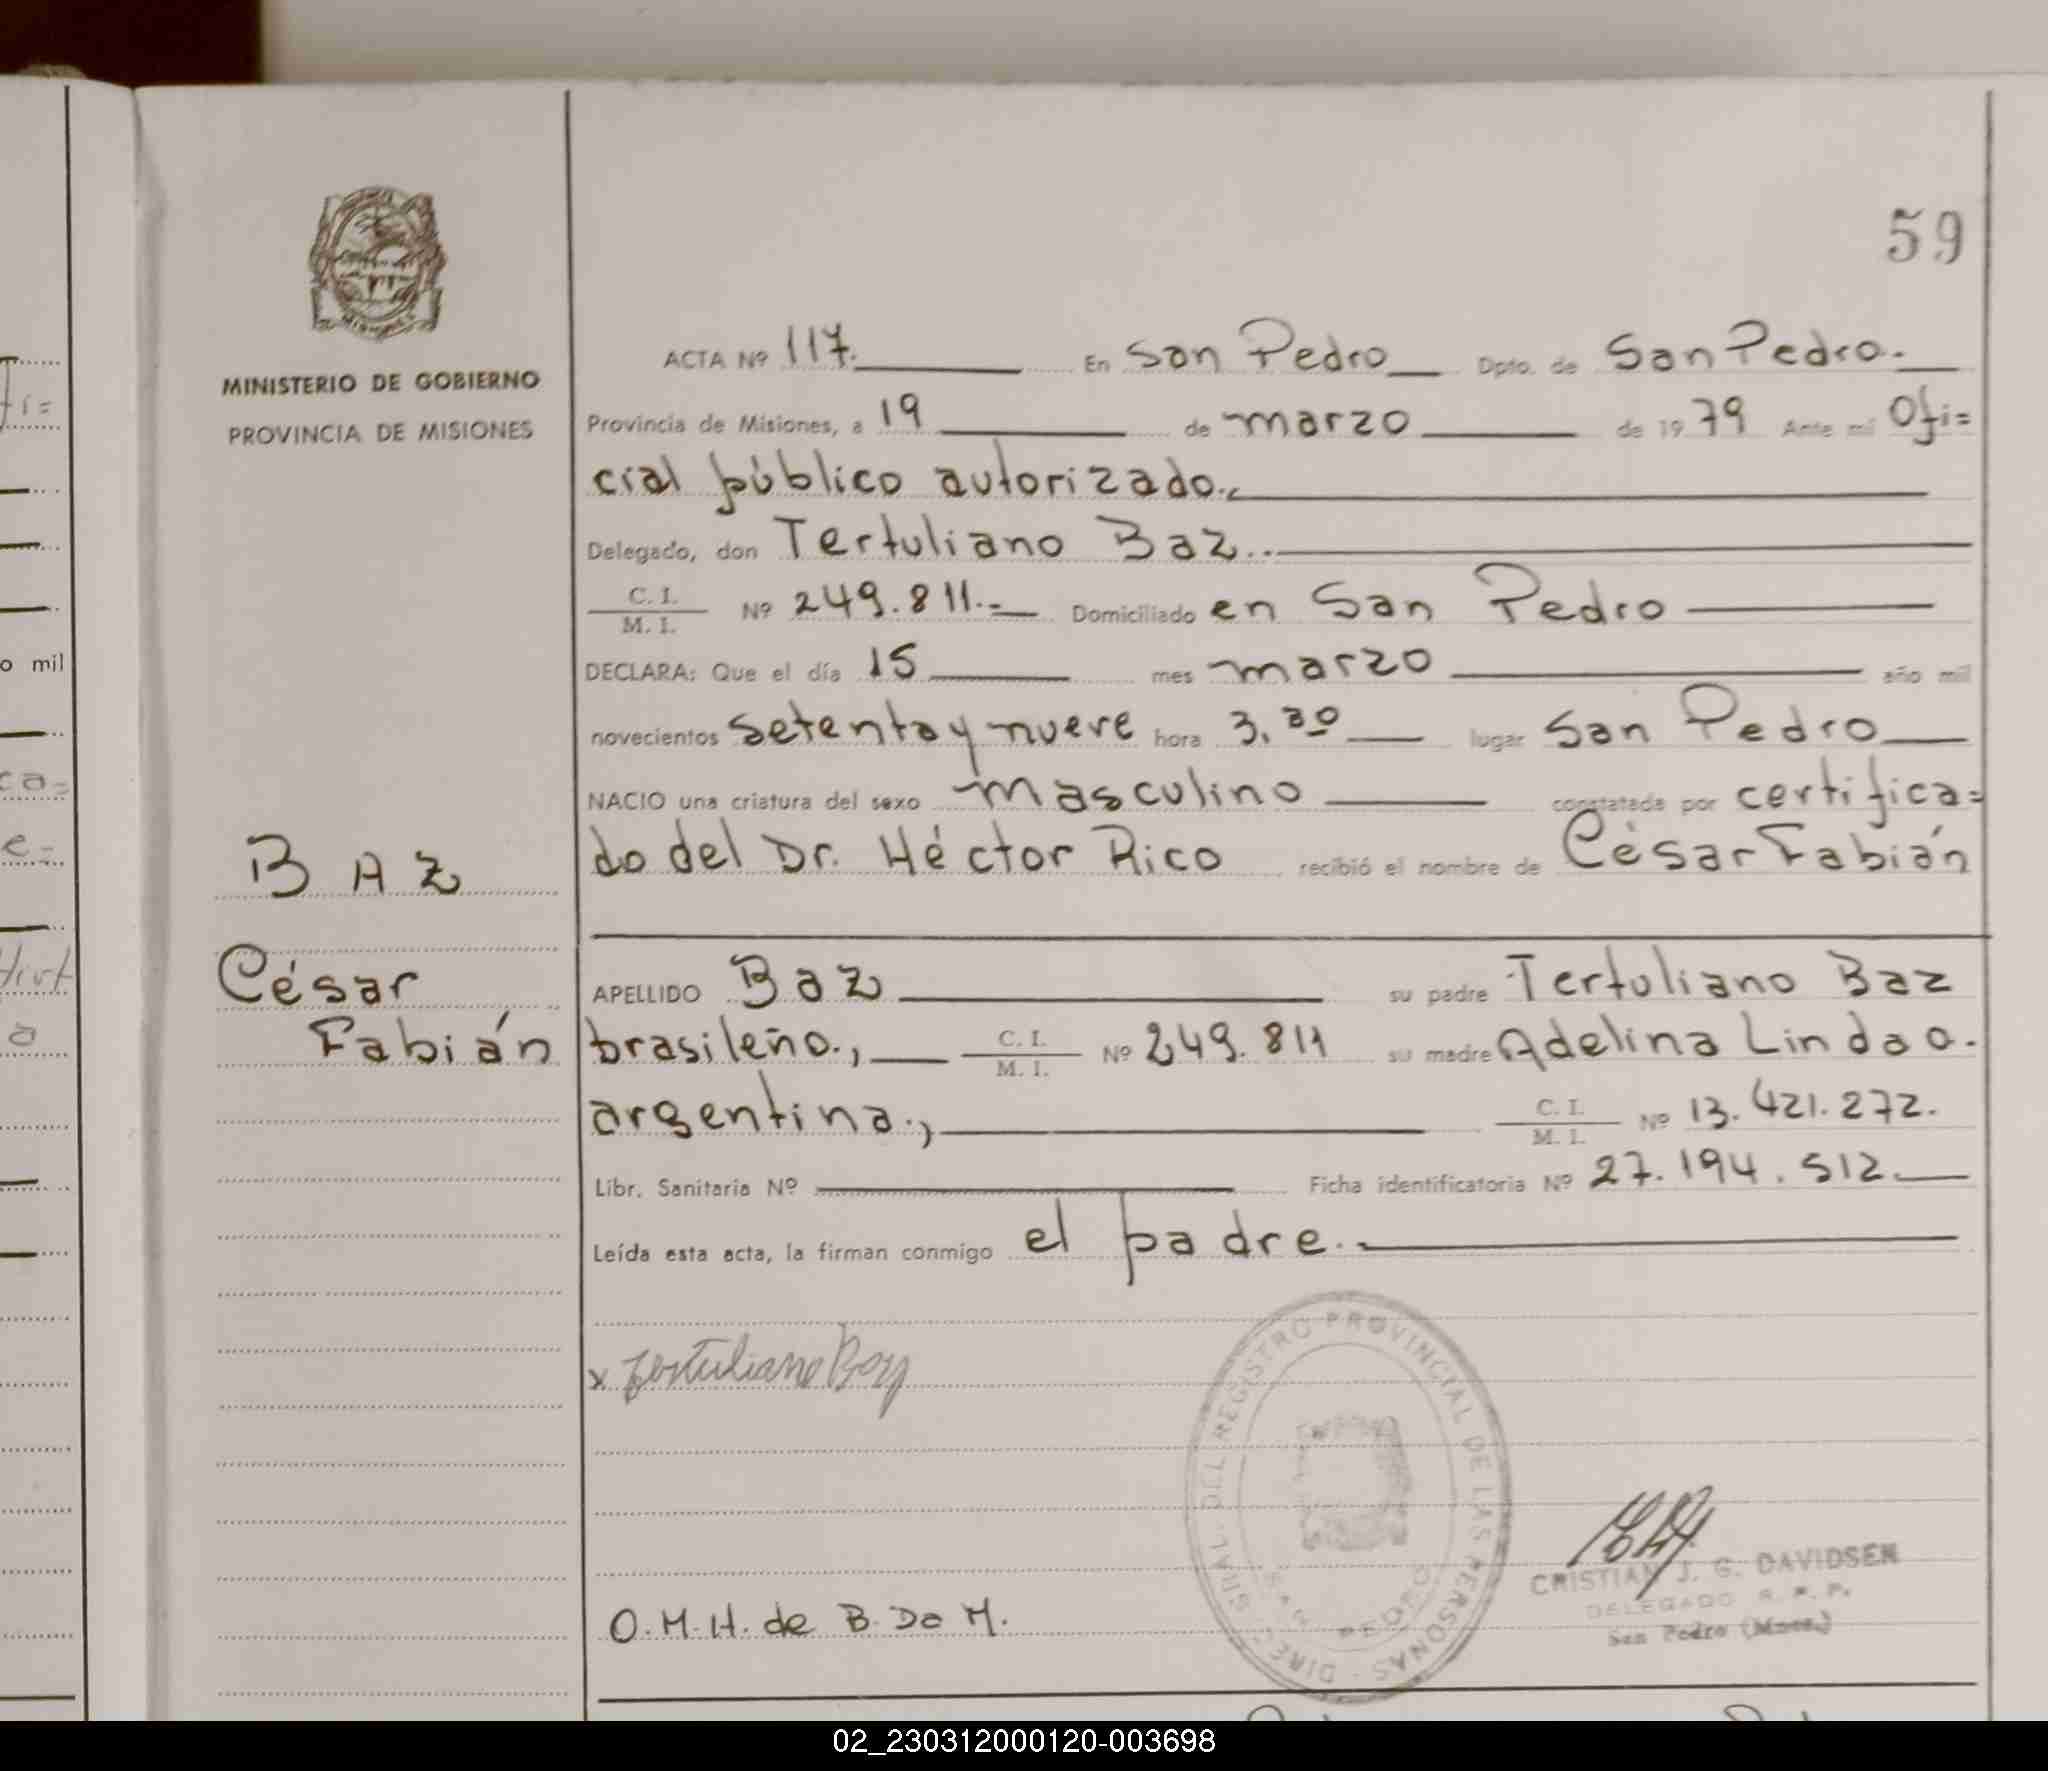 59
MINISTERIO DE GOBIERNO
PROVINCIA DE MISIONES
ACTA Nº 117. En San Pedro Dpto. de San Pedro.
Provincia de Misiones, a 19 de marzo de 1979 Ante mi Ofi=
cial público autorizado.
Delegado, don Tertuliano Baz..
C. I. / M. I. Nº 249.811.- Domiciliado en San Pedro
DECLARA: Que el día 15 mes marzo año mil
novecientos setenta y nueve hora 3,30 lugar San Pedro
NACIO una criatura del sexo masculino constatada por certifica=
do del Dr. Héctor Rico recibió el nombre de César Fabián
BAZ
César
Fabián
APELLIDO Baz su padre Tertuliano Baz
brasileño., C. I. / M. I. Nº 249.811 su madre Adelina Lindao.
argentina., C. I. / M. I. Nº 13.421.272.
Libr. Sanitaria Nº Ficha identificatoria Nº 27.194.512.
Leída esta acta, la firman conmigo el padre.
x Tertuliano Baz
DIREC. GRAL. DEL REGISTRO PROVINCIAL DE LAS PERSONAS
SAN PEDRO
CRISTIAN J. G. DAVIDSEN
DELEGADO R. P. P.
San Pedro (Mnes.)
O.M.H. de B. Do M.
o mil
02_230312000120-003698